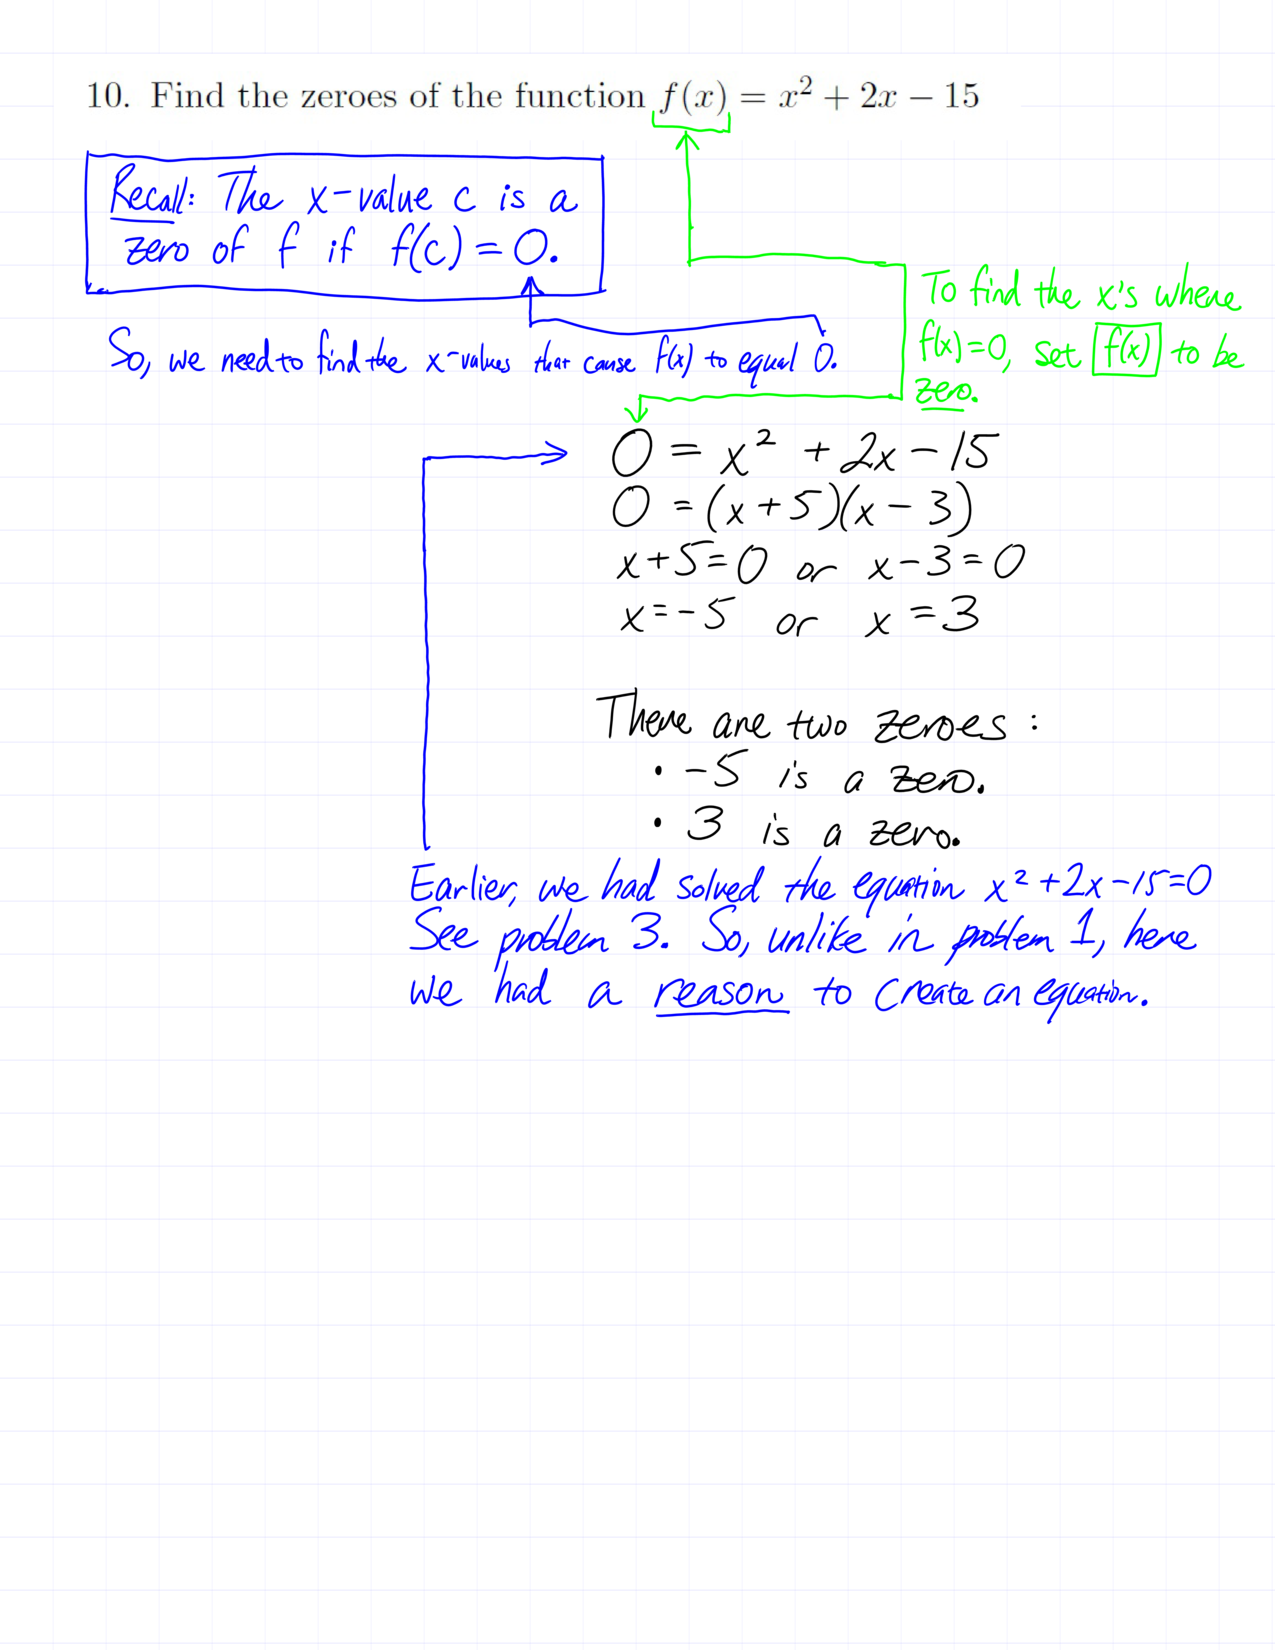 10. Find the zeroes of the function f(x) = x² + 2x − 15
Recall: The x-value c is a
zero of f if f(c) = 0.
So, we need to find the x-values that cause f(x) to equal 0.
To find the x's where
f(x)=0, set f(x) to be
zero.
0 = x² + 2x − 15
0 = (x+5)(x−3)
x+5=0 or x−3=0
x=−5 or x=3
There are two zeroes:
• −5 is a zero.
• 3 is a zero.
Earlier, we had solved the equation x²+2x−15=0
See problem 3. So, unlike in problem 1, here
we had a reason to create an equation.